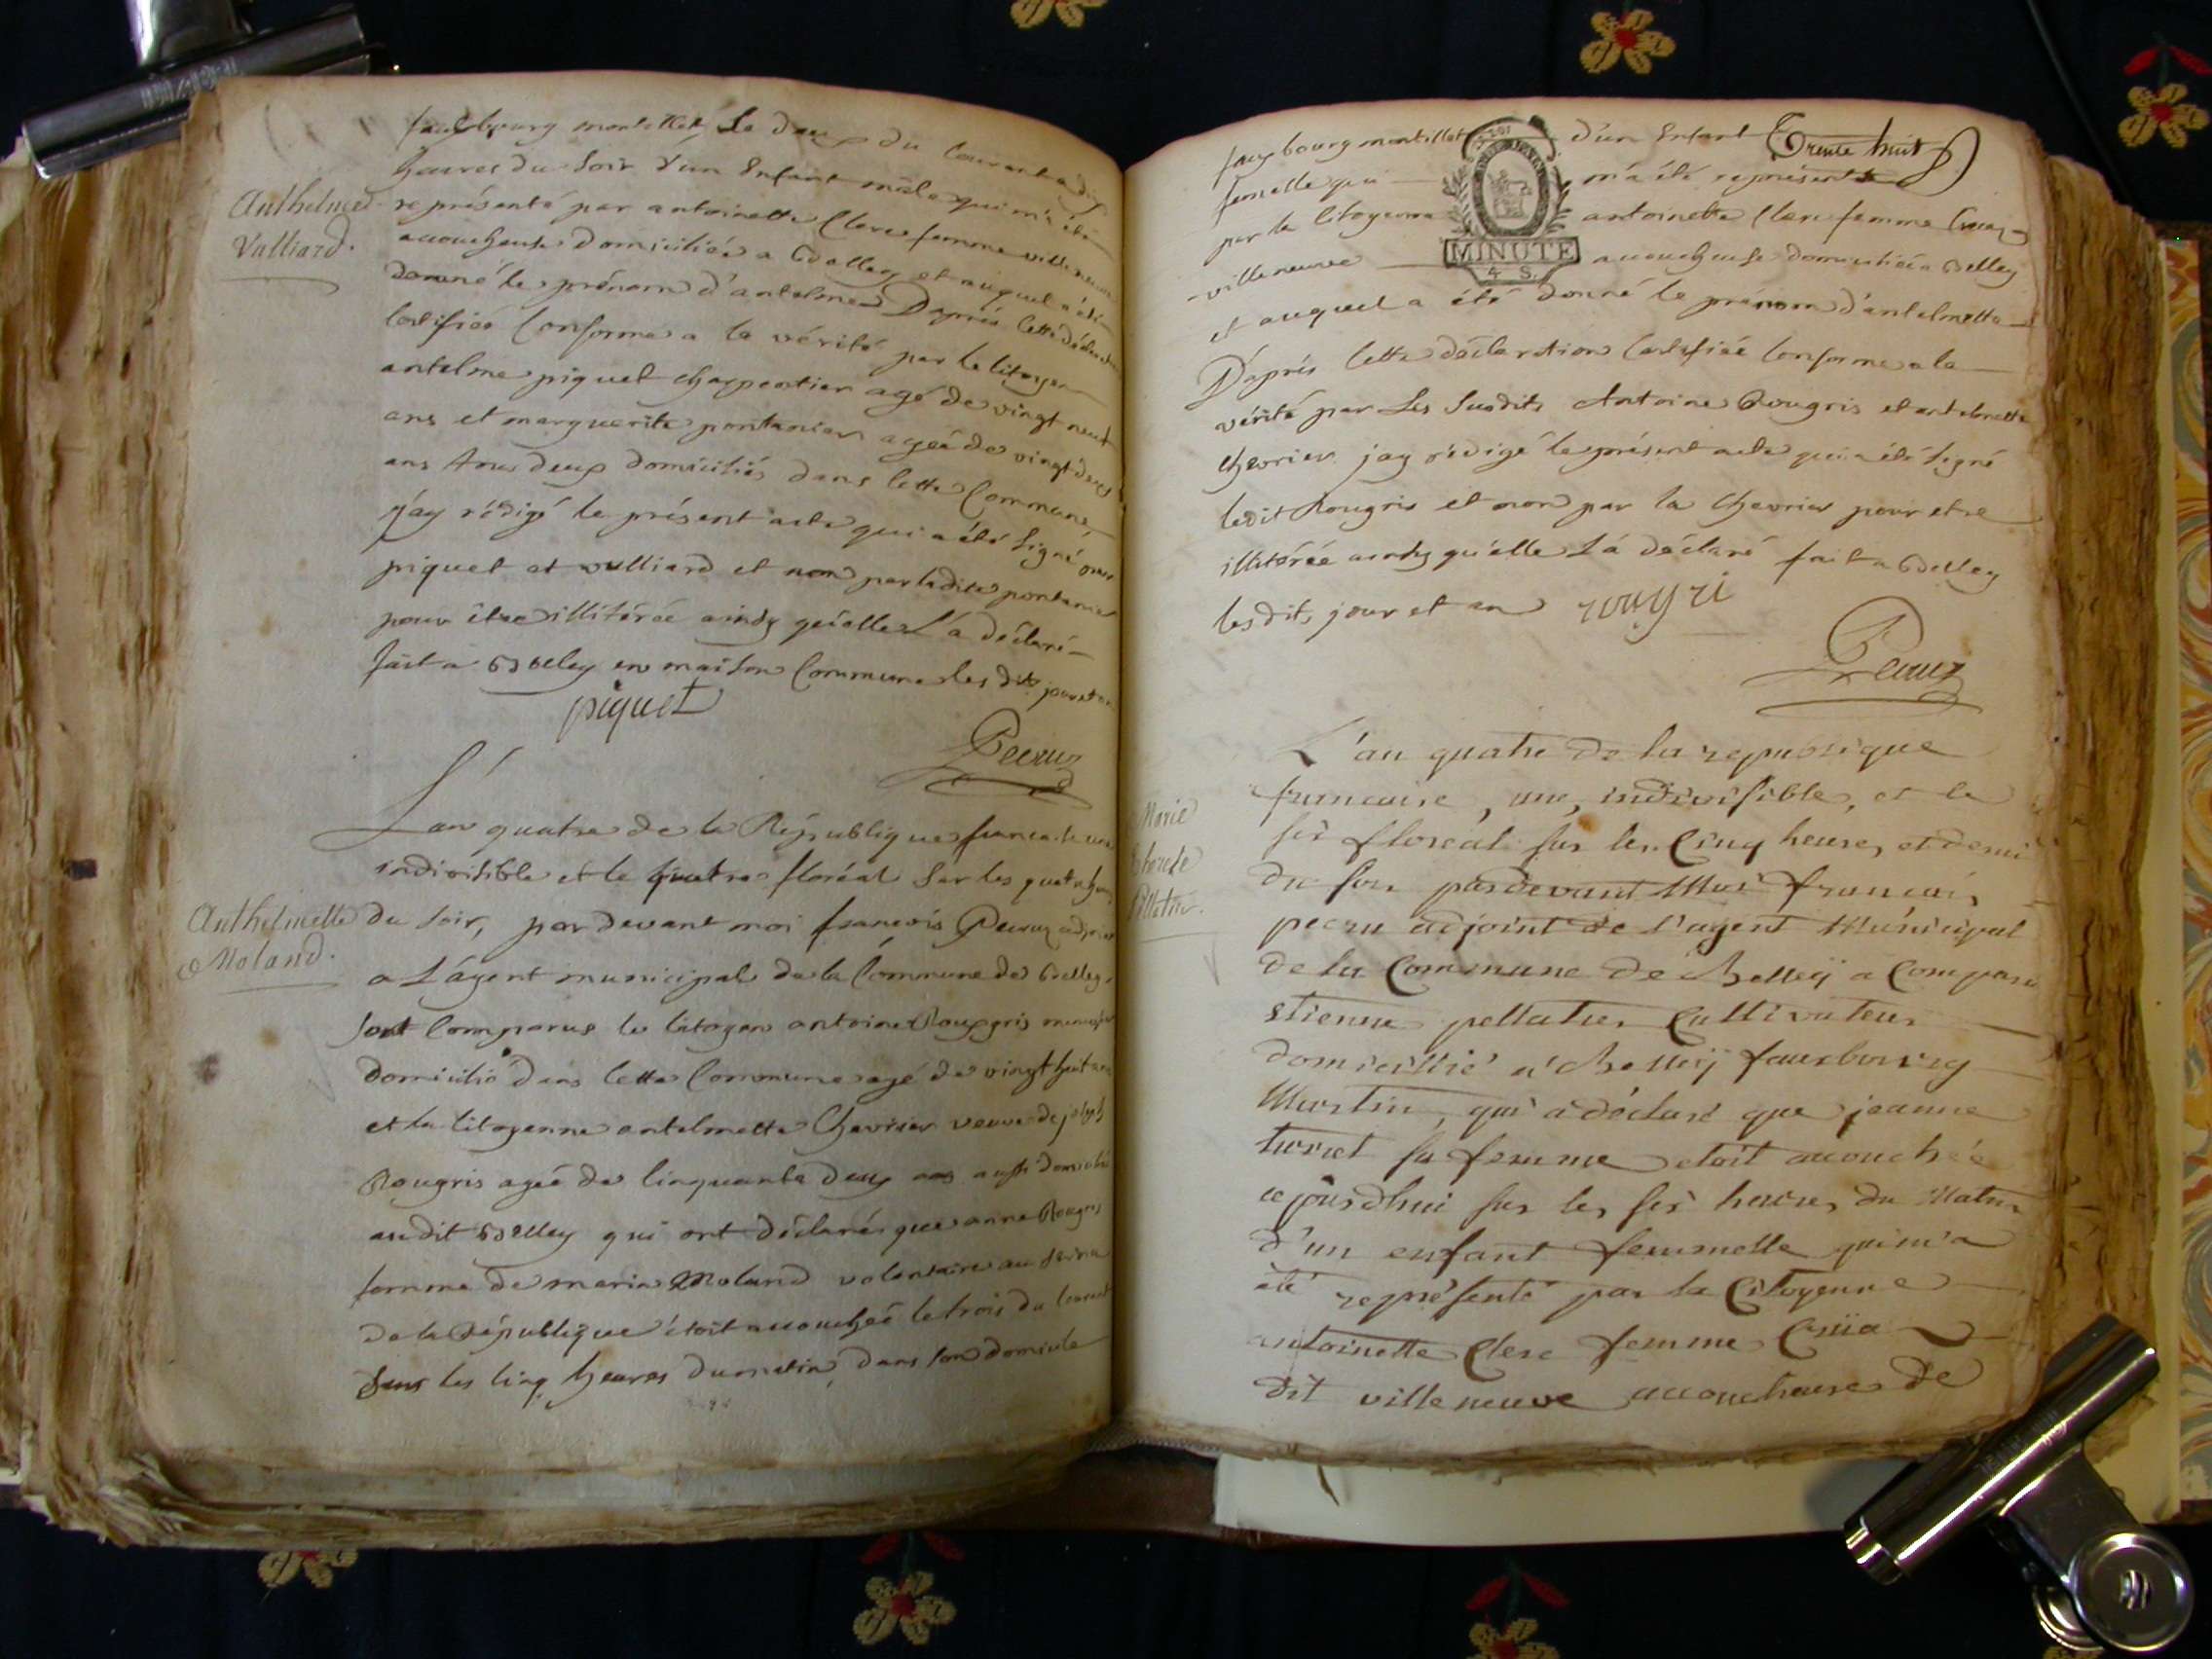 fauxbourg montillet, Le deux du Courant a dix
heures du Soir d'un Enfant mâle qui m'a été
Anthelme
Vulliard.
représenté par antoinette Clerc femme villeneuve
acoucheuse domiciliée a Belley et auquel a été
donné le prénom d'antelme Daprès cette déclaration
certifiée Conforme a la vérité par le citoyen
antelme piquet charpentier agé de vingt neuf
ans et marguerite pontanier agée de vingt deux
ans tous deux domiciliés dans cette Commune
j'ay rédigé le présent acte qui a été signé par
piquet et vulliard et non par ladite pontanier
pour être illitérée ainsy qu'elle L'a déclaré
fait a Belley en maison Commune les dits jour et an
piquet
Pecruz
L'an quatre de la République francaise une
indivisible et le quatre floréal Sur les quatre heures
Anthelmette
Moland.
du Soir, par devant moi francois Pecruz adjoint
a L'agent municipal de la Commune de Belley,
sont Comparus le citoyen antoine Rougris
domicilié dans cette Commune agé de vingt huit ans
et la citoyenne antelmette Chevrier veuve de joseph
Rougris agée de cinquante deux ans aussi domiciliée
audit Belley qui ont déclaré que anne Rougris
femme de marin Moland volontaire au service
de la République étoit acouchée le trois du Courant
Sur les cinq heures du matin, dans son domicile
fauxbourg montillet d'un Enfant Trente huit
femelle qui m'a été représenté
par la Citoyenne antoinette Clerc femme Cruaz
villeneuve acoucheuse domiciliée a Belley
MINUTE
4 S.
et auquel a été donné le prénom d'antelmette
D'après cette déclaration Certifiée Conforme a la
vérité par Les Susdits Antoine Rougris et antelmette
chevrier j'ay rédigé le présent acte qui a été signé
ledit Rougris et non par la Chevrier pour etre
illitérée ainsy qu'elle L'a déclaré fait a Belley
les dits jour et an rougri
Pecruz
L'an quatre de la republique
francaise, une, indivisible, et le
Marie
pellatier.
six floreal sur les Cinq heures et demi
du soir pardevant Moi francois
pecru adjoint de l'agent Municipal
de la Commune de Belleÿ a Comparu
Etienne pellatier Cultivateur
domicillié a Belleÿ fauxbourg
Martin, qui a déclaré que jeanne
sa femme etoit acouchée
cejourdhui sur les six heures du Matin
d'un enfant femmelle qui m'a
été représenté par la Citoyenne
antoinette Clerc femme
dit ville neuve accoucheuse de